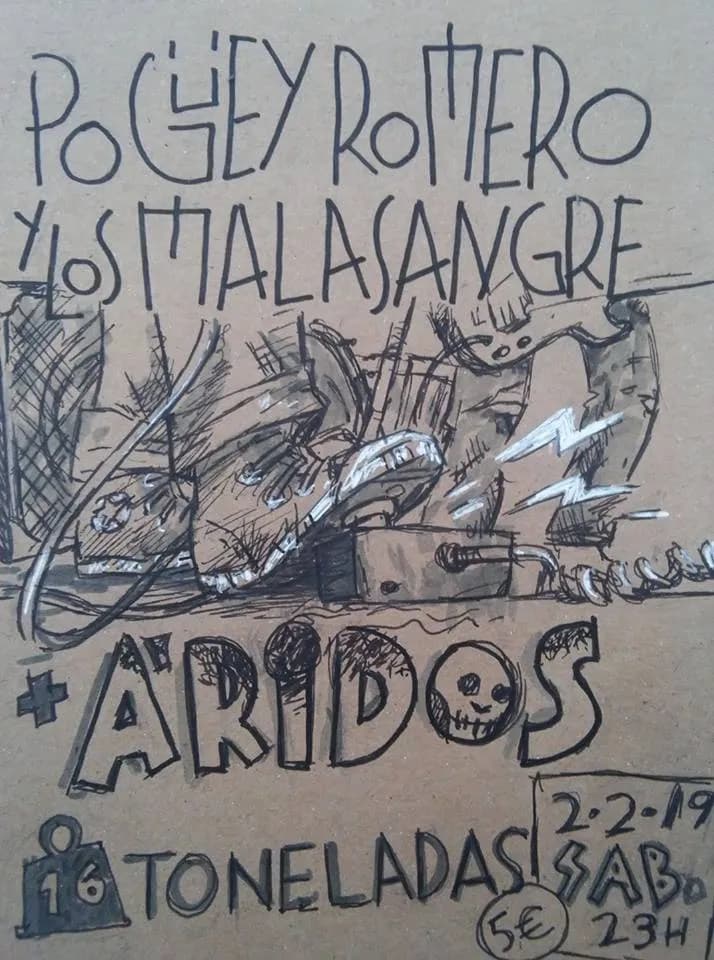 POGÜEY ROMERO
Y LOS MALASANGRE
+ ÄRIDOS
16 TONELADAS
5€
2·2·19
SAB.
23H